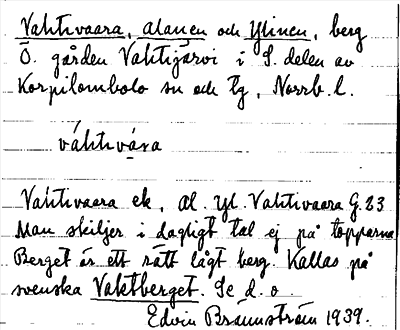 Vahtivaara, alanen och Ylinen, berg
Ö. gården Vahtijärvi i S. delen av
Korpilombolo sn och tg, Norrb. l.
váhtivạ̄ra
Vahtivaara ek, Al. Yl. Vahtivaara G.23
Man skiljer i dagligt tal ej på topparna
Berget är ett rätt lågt berg. Kallas på
svenska Vaktberget. Se d.o
Edvin Brännström 1939.